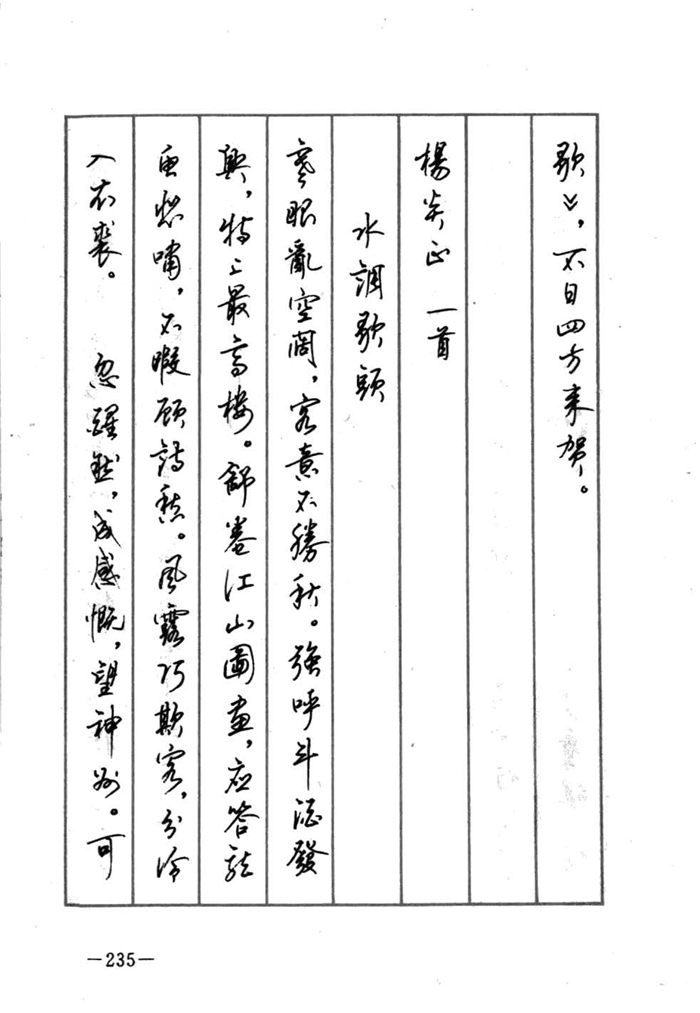 歌》，不日四方来賀。
楊炎正 一首
水調歌頭
寒眼亂空闊，客意不勝秋。強呼斗酒發
興，特上最高樓。舒卷江山圖畫，應答龍
魚悲嘯，不暇顧詩愁。風露巧欺客，分冷
入衣裘。 忽醒然，成感慨，望神州。可
—235—